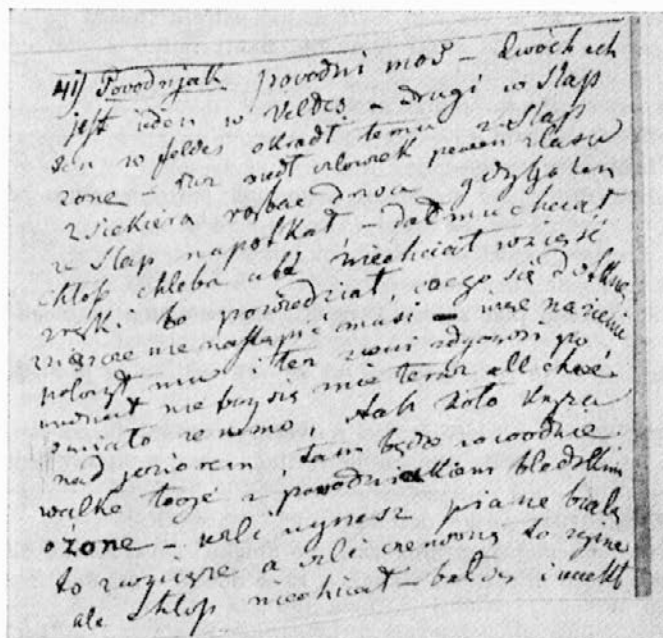 41) Povodnjak povodni mož – dwóch ich
jest jeden w Veldes – drugi w Slap
ten w feldes okradł temu z Slap
żone – raz szedł człowiek pewien z lasu
z siekierą drwa gdy go ten
z Slap napotkał – dał mu chciał
chłop chleba ale niechciał wziąść
z ręki bo powiedział, czego się dotknę
nie masi – więc na ziemię
położył mu i ten zwi
nie boj się mie teraz ale chodź
śmiało ze mną, tak koło
nad jeziorem, tam będę w wodzie
walkę toczć z powodniakiem bledskim
o żone – jeśli ujrzesz pianę białą
to zwyciężę a jeśli czerwoną to zginę
ale chłop niechciał – bał się i uciekł